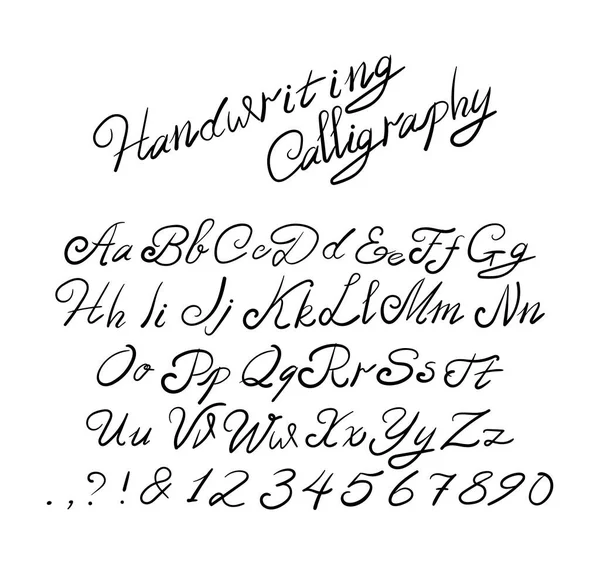 Handwriting
Calligraphy
Aa Bb Cc Dd Ee Ff Gg
Hh Ii Jj Kk Ll Mm Nn
Oo Pp Qq Rr Ss Tt
Uu Vv Ww Xx Yy Zz
. , ? ! & 1 2 3 4 5 6 7 8 9 0